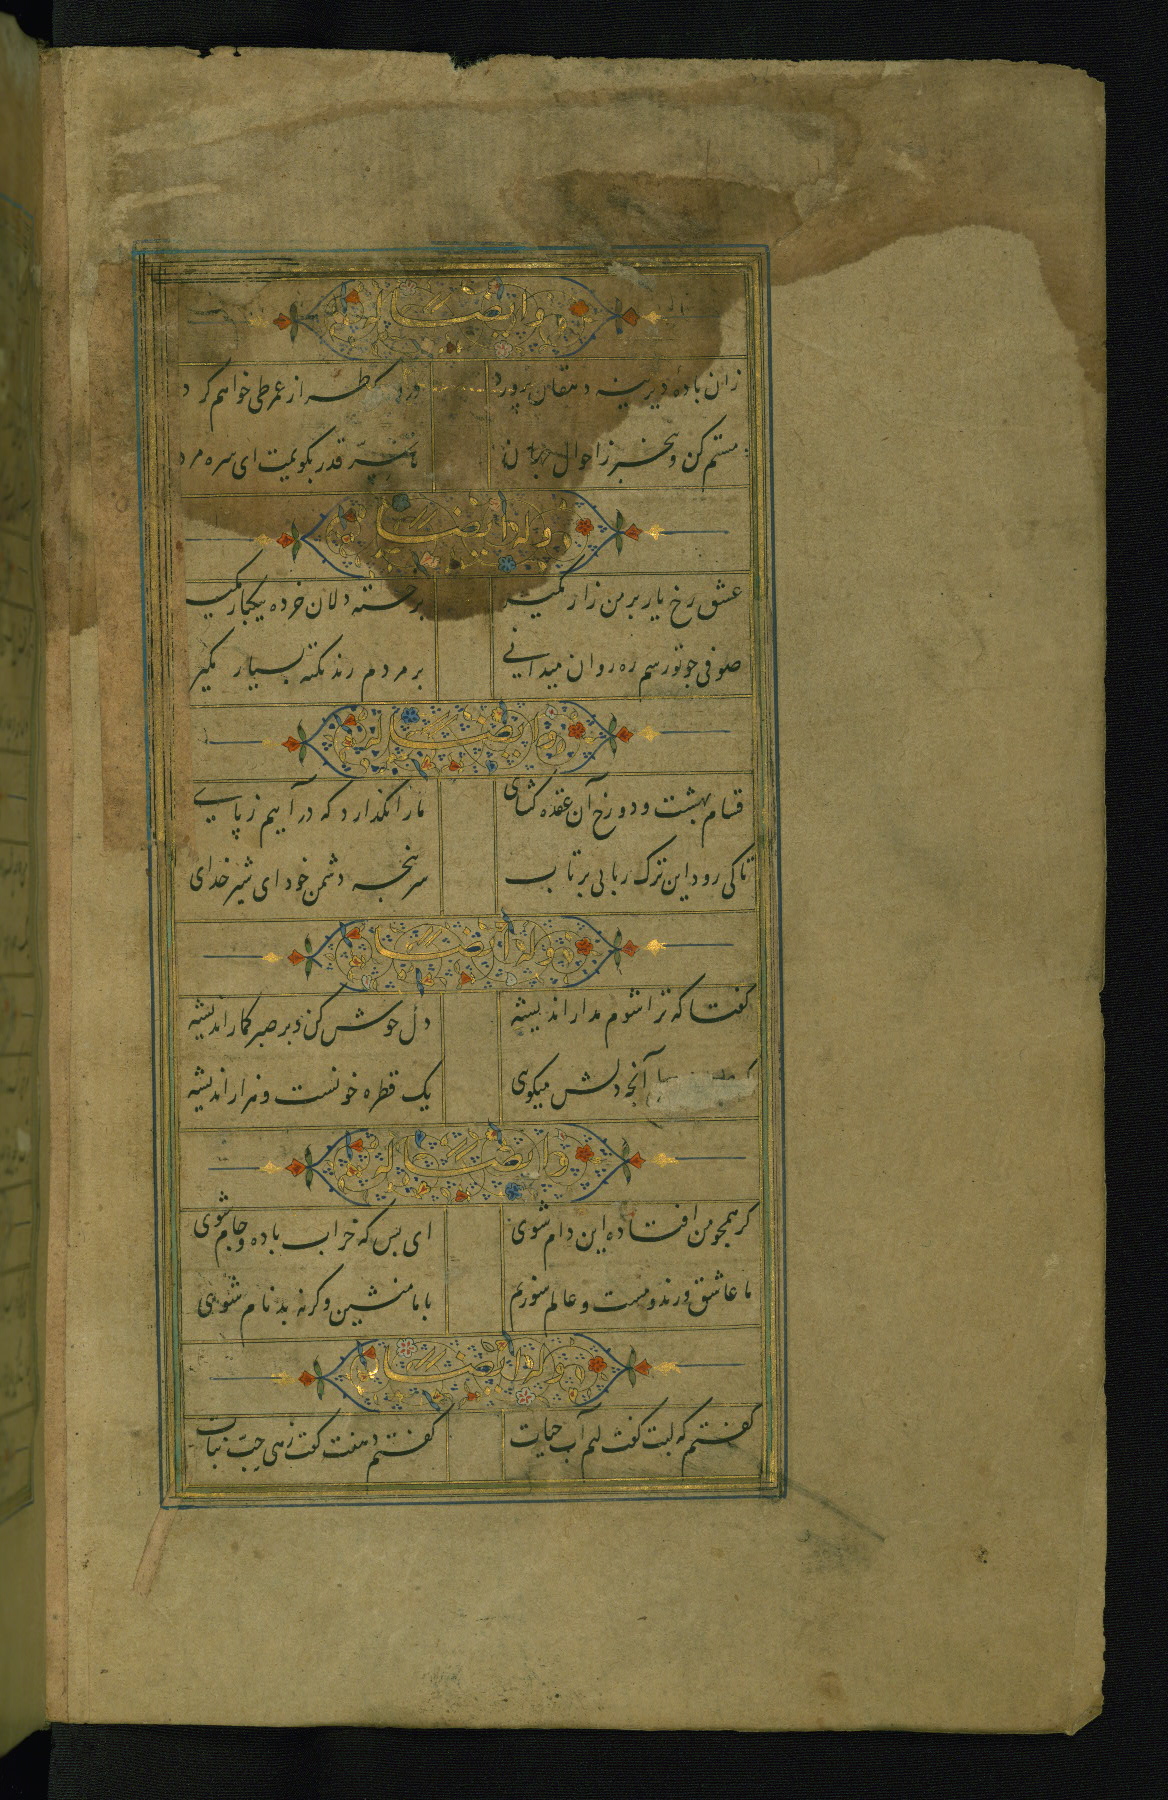 وله ایضا
زان باده دیرینه دهقان پرورد
در ده که طراز عمر طی خواهم کرد
مستم کن و بیخبر ز احوال جهان
تا سر قدر بگویمت ای سره مرد
وله ایضا
عشق رخ یار بر من زار مگیر
بر خسته دلان خرده بیکبار مگیر
صوفی چو تو رسم ره روان میدانی
بر مردم رند نکته بسیار مگیر
وله ایضا
قسام بهشت و دوزخ آن عقده کشای
ما را نگذارد که در آییم ز پای
تا کی رود این ربایی برتاب
سر پنجه دشمن خود ای شیر خدای
وله ایضا
گفتا که ترا شوم مدار اندیشه
دل خوش کن و بر صبر گمار اندیشه
آنچه دلش میگوی
یک قطره خونست و هزار اندیشه
وله ایضا
گر همچو من افتاده این دام شوی
ای بس که خراب باده و جام شوی
ما عاشق و رند و مست و عالم سوزیم
با ما منشین وگرنه بدنام شوی
وله ایضا
گفتم که لبت گفت لبم آب حیات
گفتم دهنت گفت زهی حب نبات